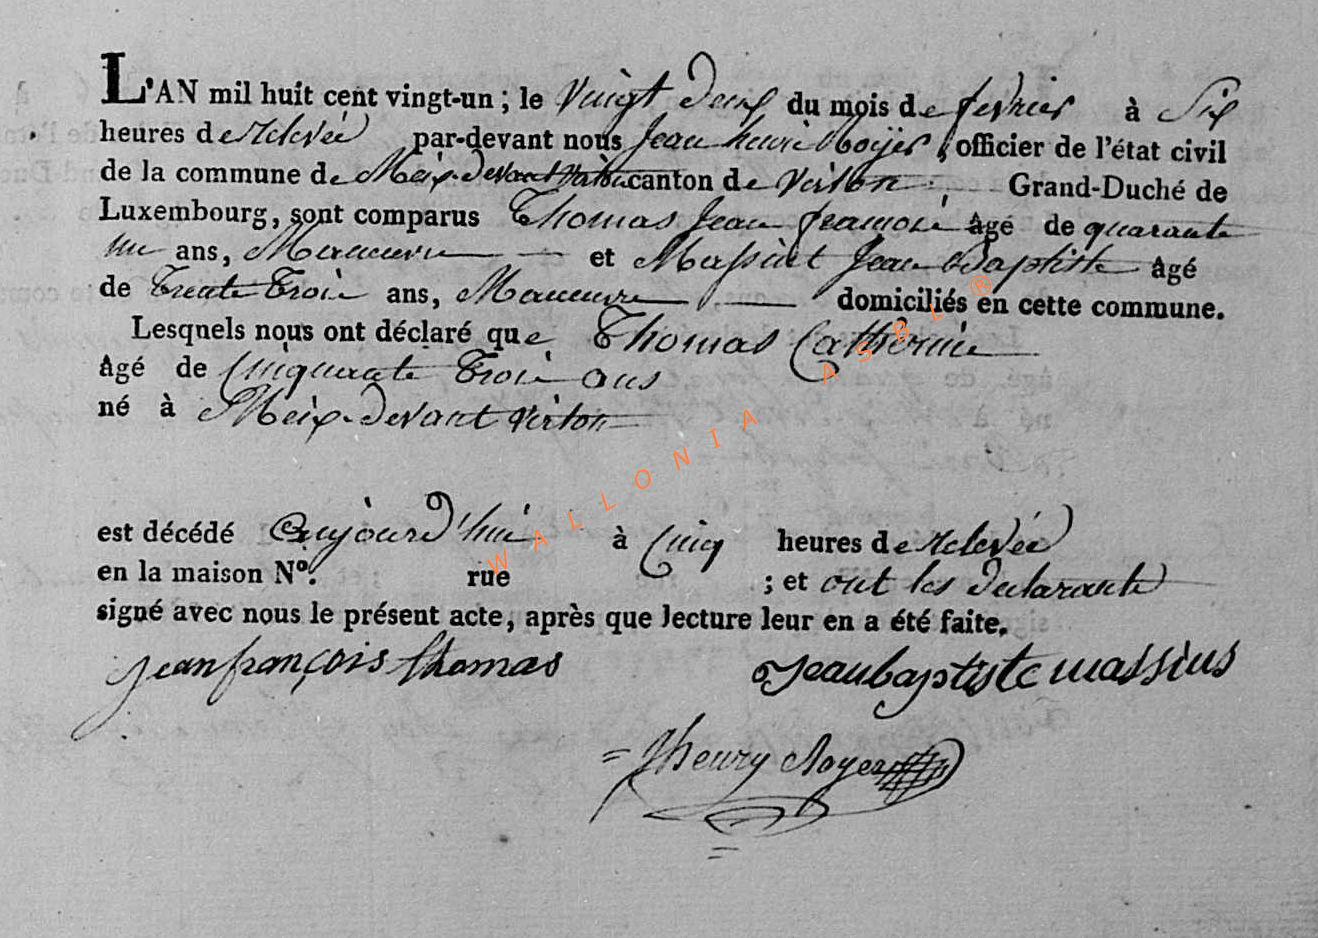 L'AN mil huit cent vingt-un ; le vingt deux du mois de fevrier à Six
heures de Relevée par-devant nous Jean henri Royer, officier de l'état civil
de la commune de Meix-devant virton canton de virton Grand-Duché de
Luxembourg, sont comparus Thomas Jean francois âgé de quarante
un ans, Maneuvre et Massint Jean Baptiste âgé
de trente trois ans, Maneuvre domiciliés en cette commune.
Lesquels nous ont déclaré que Thomas Catherine
âgé de Cinquante trois ans
né à Meix-devant virton
est décédé aujourd'hui à Cinq heures de Relevée
en la maison N°. rue ; et ont les declarants
signé avec nous le présent acte, après que lecture leur en a été faite.
jeanfrançois thomas Jeanbaptiste massius
Jhenry Royer
WALLONIA ASBL ®